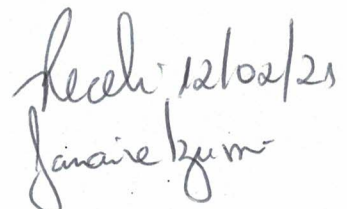 Recebi 12/02/21
Janaina Izumi